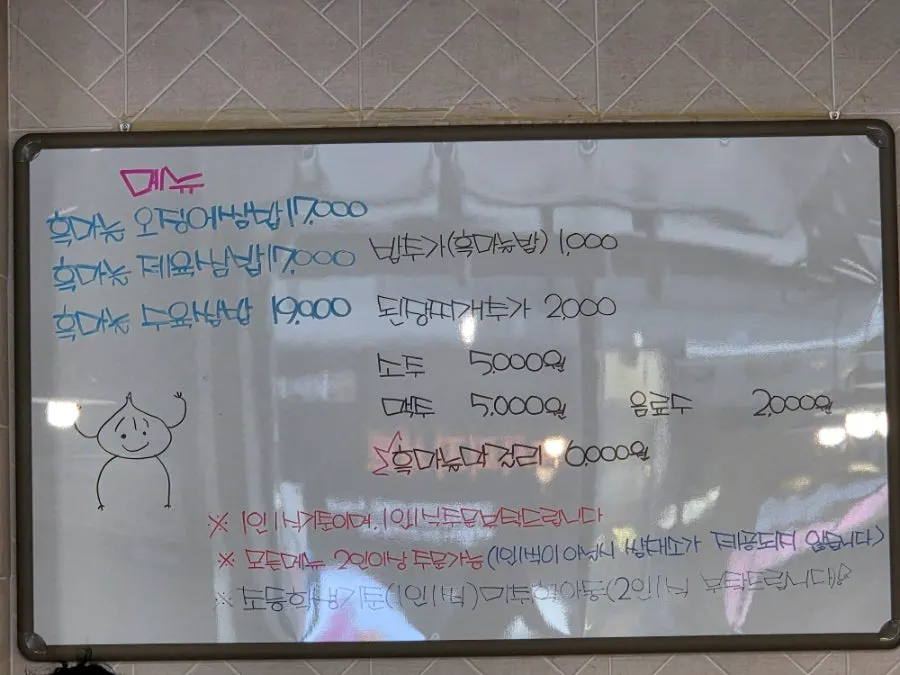 메뉴
흑마늘 오징어쌈밥 17,000
흑마늘 제육쌈밥 17,000
흑마늘 수육쌈밥 19,000
밥추가(흑마늘밥) 1,000
된장찌개추가 2,000
소주 5,000원
맥주 5,000원 음료수 2,000원
흑마늘막걸리 6,000원
※ 1인 1식기준이며, 1인1식주문부탁드립니다
※ 모든메뉴 2인이상 주문가능 (1인분이 아닐시 쌈채소가 제공되지 않습니다)
※ 초등학생기준(1인1식) 미취학아동(2인1식 부탁드립니다)